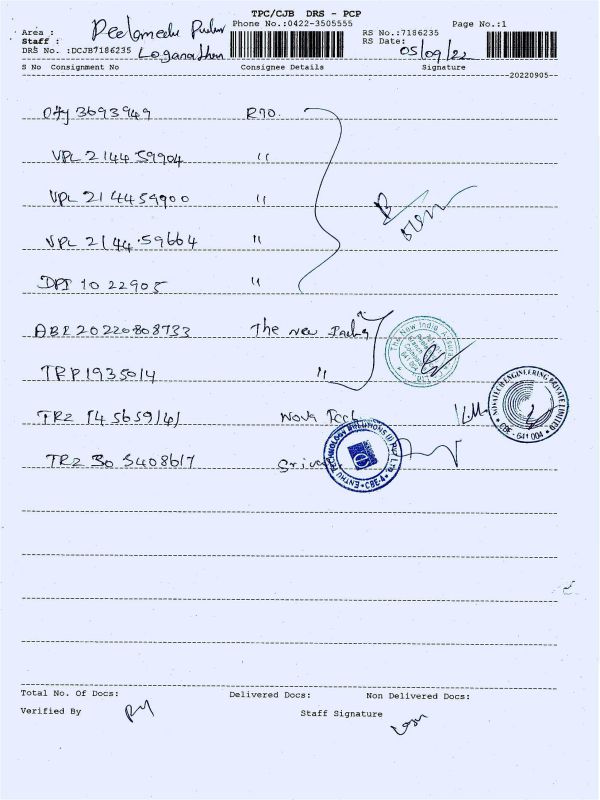 TPC/CJB DRS - PCP
Area : Peelamedu Pudur Phone No.:0422-3505555 Page No.:1
Staff : Loganathan RS No.:7186235
DRS No. :DCJB7186235 RS Date: 05/09/22
S No Consignment No Consignee Details Signature
20220905
3693949 RTO.
VPL 214459904 "
VPL 214459900 "
VPL 214459664 "
"
20220808733 The New India
The New India Assura
TRP 1935014 "
TRZ 145659141 Nova Tech
NOVATECH ENGINEERING PRIVATE LIMITED CBE - 641 004
TRZ 303408617
ENTHU TECHNOLOGY SOLUTIONS (I) Pvt. Ltd. CBE-4
Total No. Of Docs: Delivered Docs: Non Delivered Docs:
Verified By Staff Signature